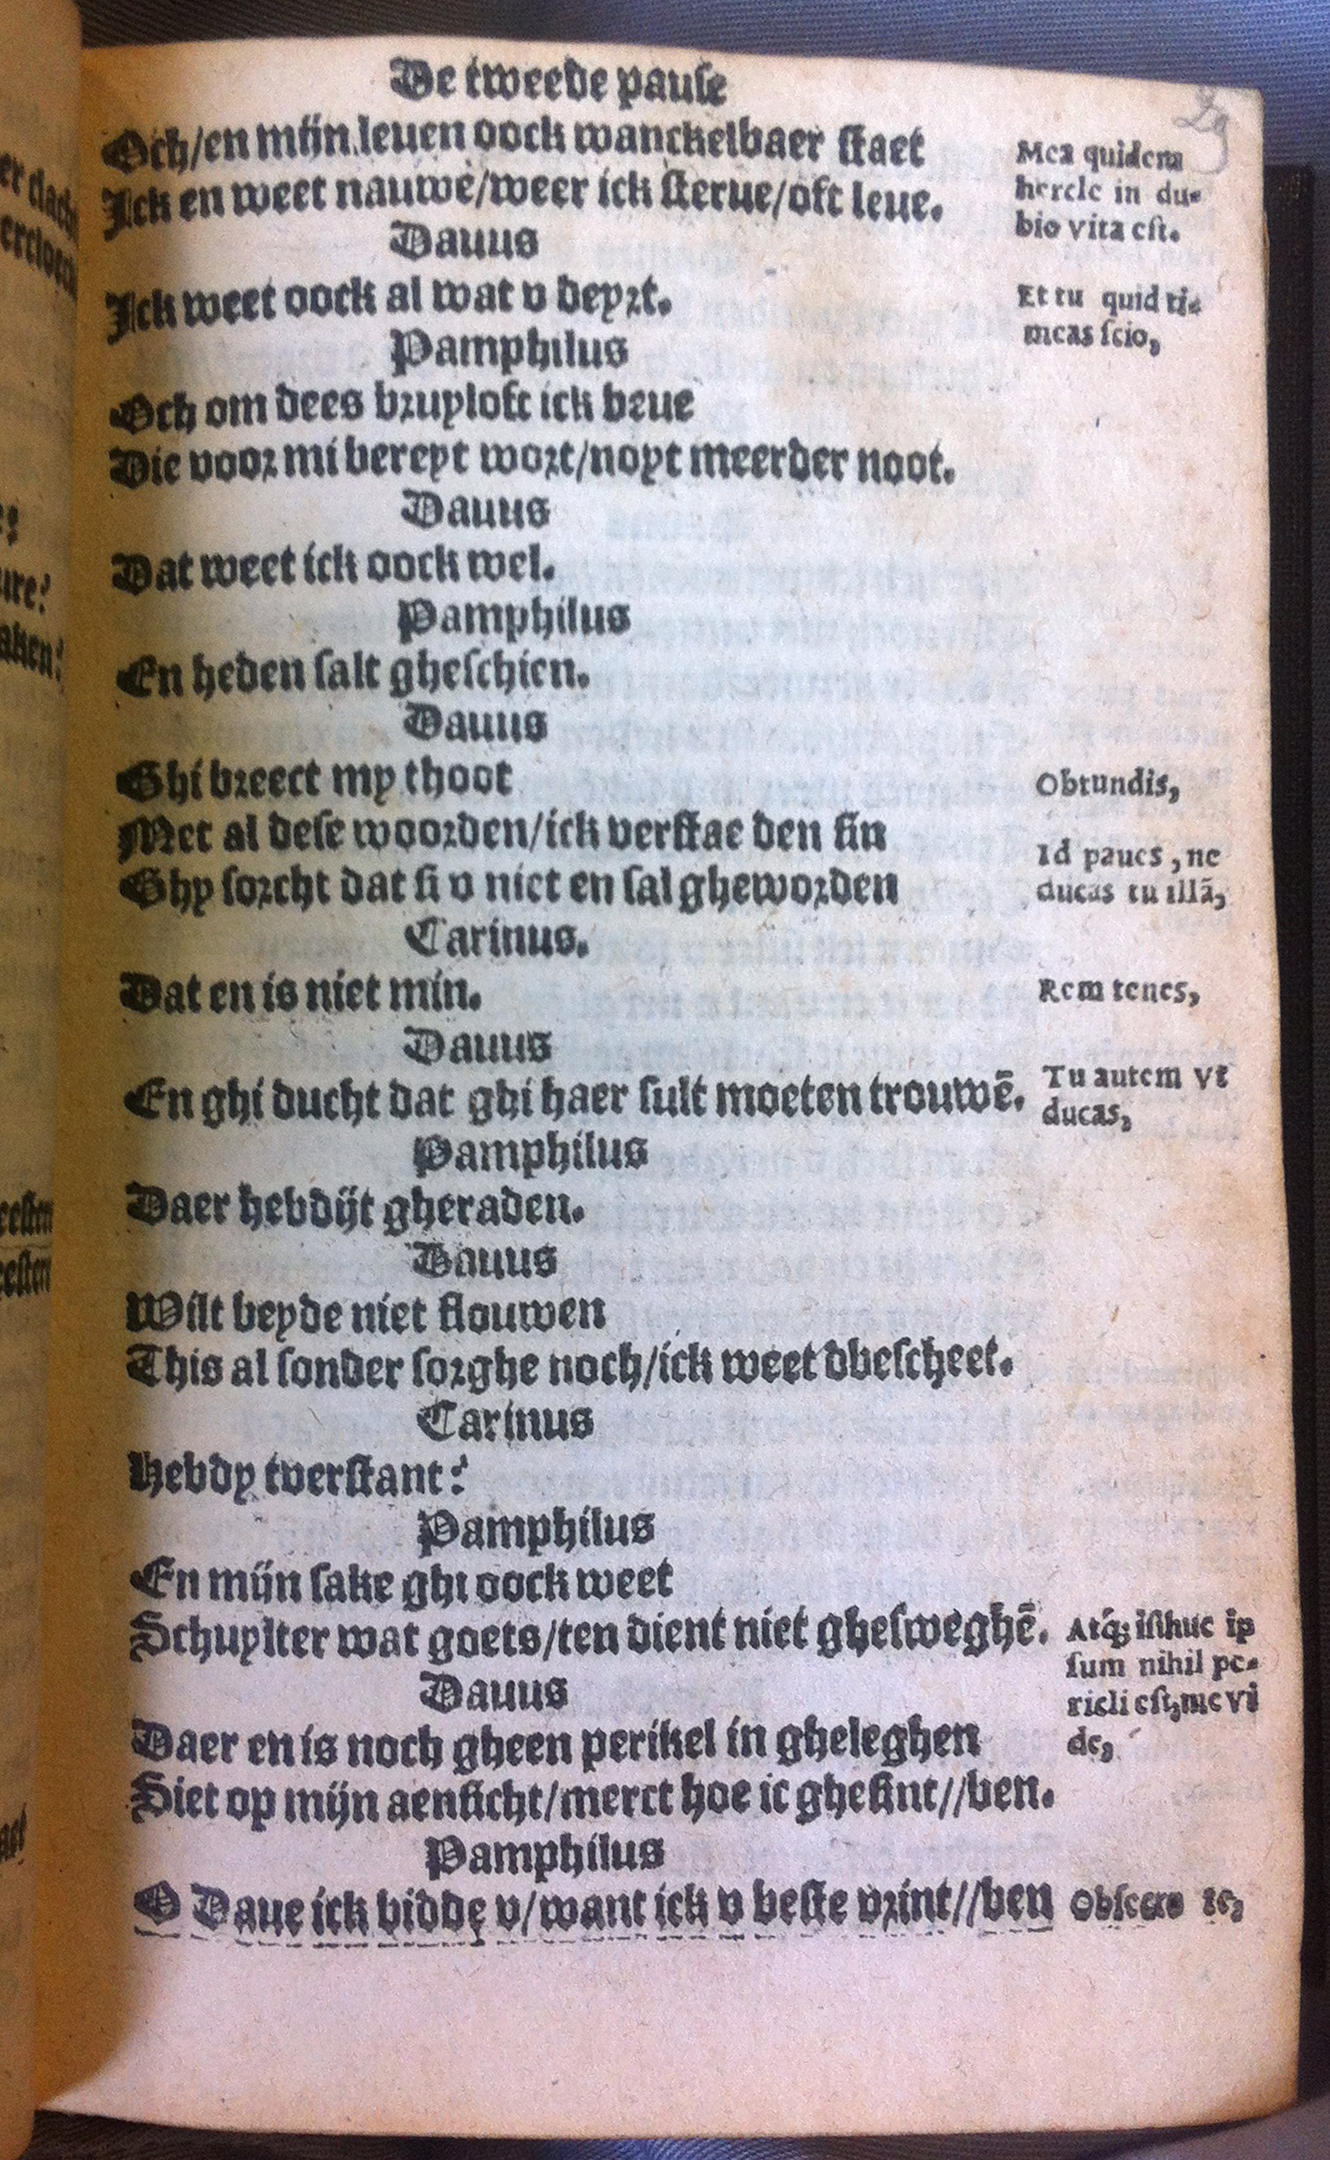 De tweede pause
29
Och/en mijn leuen oock wanckelbaer staet
Ick en weet nauwe/weer ick sterue/oft leue.
Mea quidem
hercle in du-
bio vita est.
Dauus
Ick weet oock al wat v deyrt.
Et tu quid ti-
meas scio,
Pamphilus
Och om dees bruyloft ick beue
Die voor mi bereyt wort/noyt meerder noot.
Dauus
Dat weet ick oock wel.
Pamphilus
En heden salt gheschien.
Dauus
Ghi breect my thoot
Obtundis,
Met al dese woorden/ick verstae den sin
Ghy sorcht dat si v niet en sal gheworden
Id paues, ne
ducas tu illã,
Carinus.
Dat en is niet min.
Rem tenes,
Dauus
En ghi ducht dat ghi haer sult moeten trouwē.
Tu autem vt
ducas,
Pamphilus
Daer hebdijt gheraden.
Dauus
Wilt beyde niet flouwen
This al sonder sorghe noch/ick weet dbescheet.
Carinus
Hebdy tverstant?
Pamphilus
En mijn sake ghi oock weet
Schuylter wat goets/ten dient niet ghesweghē.
Atq; isthuc ip
sum nihil pe-
ricli est, me vi
de,
Dauus
Daer en is noch gheen perikel in gheleghen
Siet op mijn aensicht/merct hoe ic ghesint//ben.
Pamphilus
O Daue ick bidde v/want ick v beste vrint//ben
Obsecro ꝛc,